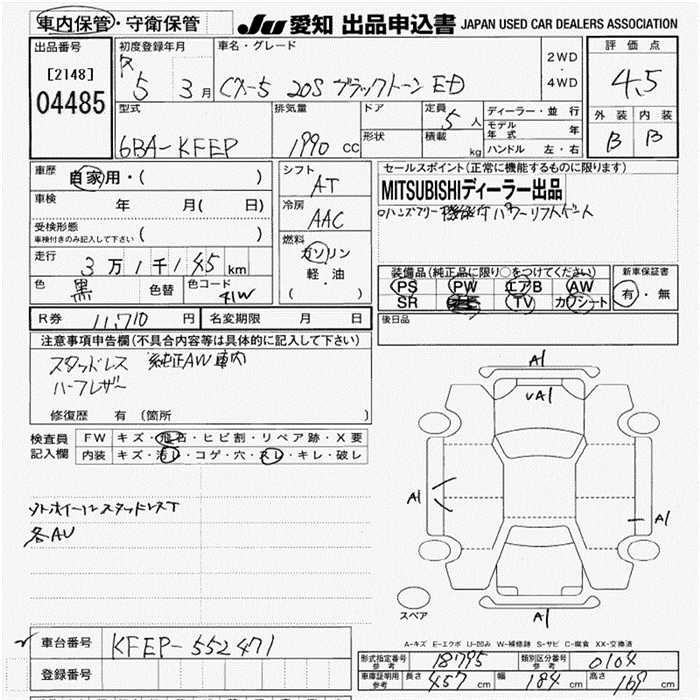 車内保管・守衛保管 JU 愛知 出品申込書 JAPAN USED CAR DEALERS ASSOCIATION
出品番号 初度登録年月 車名・グレード 評価点
[2148] 04485 R 5 3月 CX-5 20S ブラックトーン ED 2WD・4WD 4.5
外装 内装
B B
型式 排気量 ドア 定員 ディーラー・並行
6BA-KFEP 1990 cc 5人 モデル年式
形状 積載 kg ハンドル 左・右
車歴 自家用・( ) シフト AT セールスポイント(正常に機能するものに限ります)
MITSUBISHIディーラー出品
車検 年 月( 日) 冷房 AAC
ハンズフリー機能付パワーリフトゲート
受検形態 ( )
車検付きのみ記入して下さい
燃料 ガソリン 軽・油 ( )
走行 3万1千145km
装備品(純正品に限り○をつけてください) 新車保証書
色 黒 色替 色コード 41W
PS PW エアB AW 有・無
SR TV カワシート
R券 11,710円 名変期限 月 日 後日品
注意事項申告欄(不具合内容等は具体的に記入して下さい)
スタッドレス 純正AW車内
ハーフレザー
修復歴 有(箇所 )
A1
UA1
検査員記入欄 FW キズ・飛石・ヒビ割・リペア跡・X要
内装 キズ・汚レ・コゲ・穴・スレ・キレ・破レ
A1
A1
ソトホイールスタッドレスT
各AU
スペア
A1
A-キズ E-エクボ U-凹み W-補修跡 S-サビ C-腐食 XX-交換済
車台番号 KFEP-552471
形式指定番号 参考 18795 類別区分番号 参考 0104
登録番号
車庫証明用 参考 長さ 457cm 幅 184cm 高さ 169cm